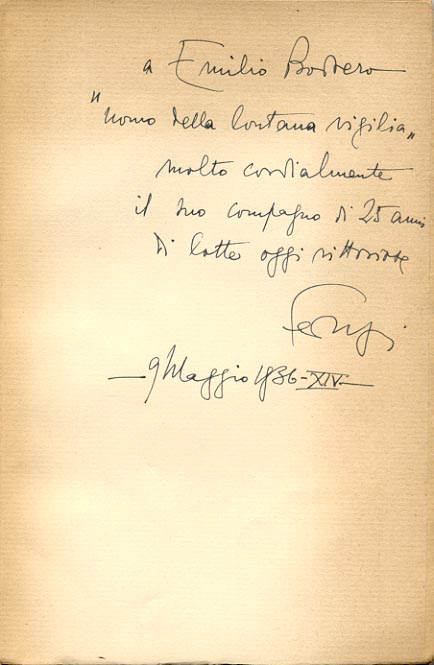 a Emilio Bodrero
"uomo della lontana vigilia"
molto cordialmente
il suo compagno di 25 anni
di lotte oggi vittoriose
9 Maggio 1936-XIV-